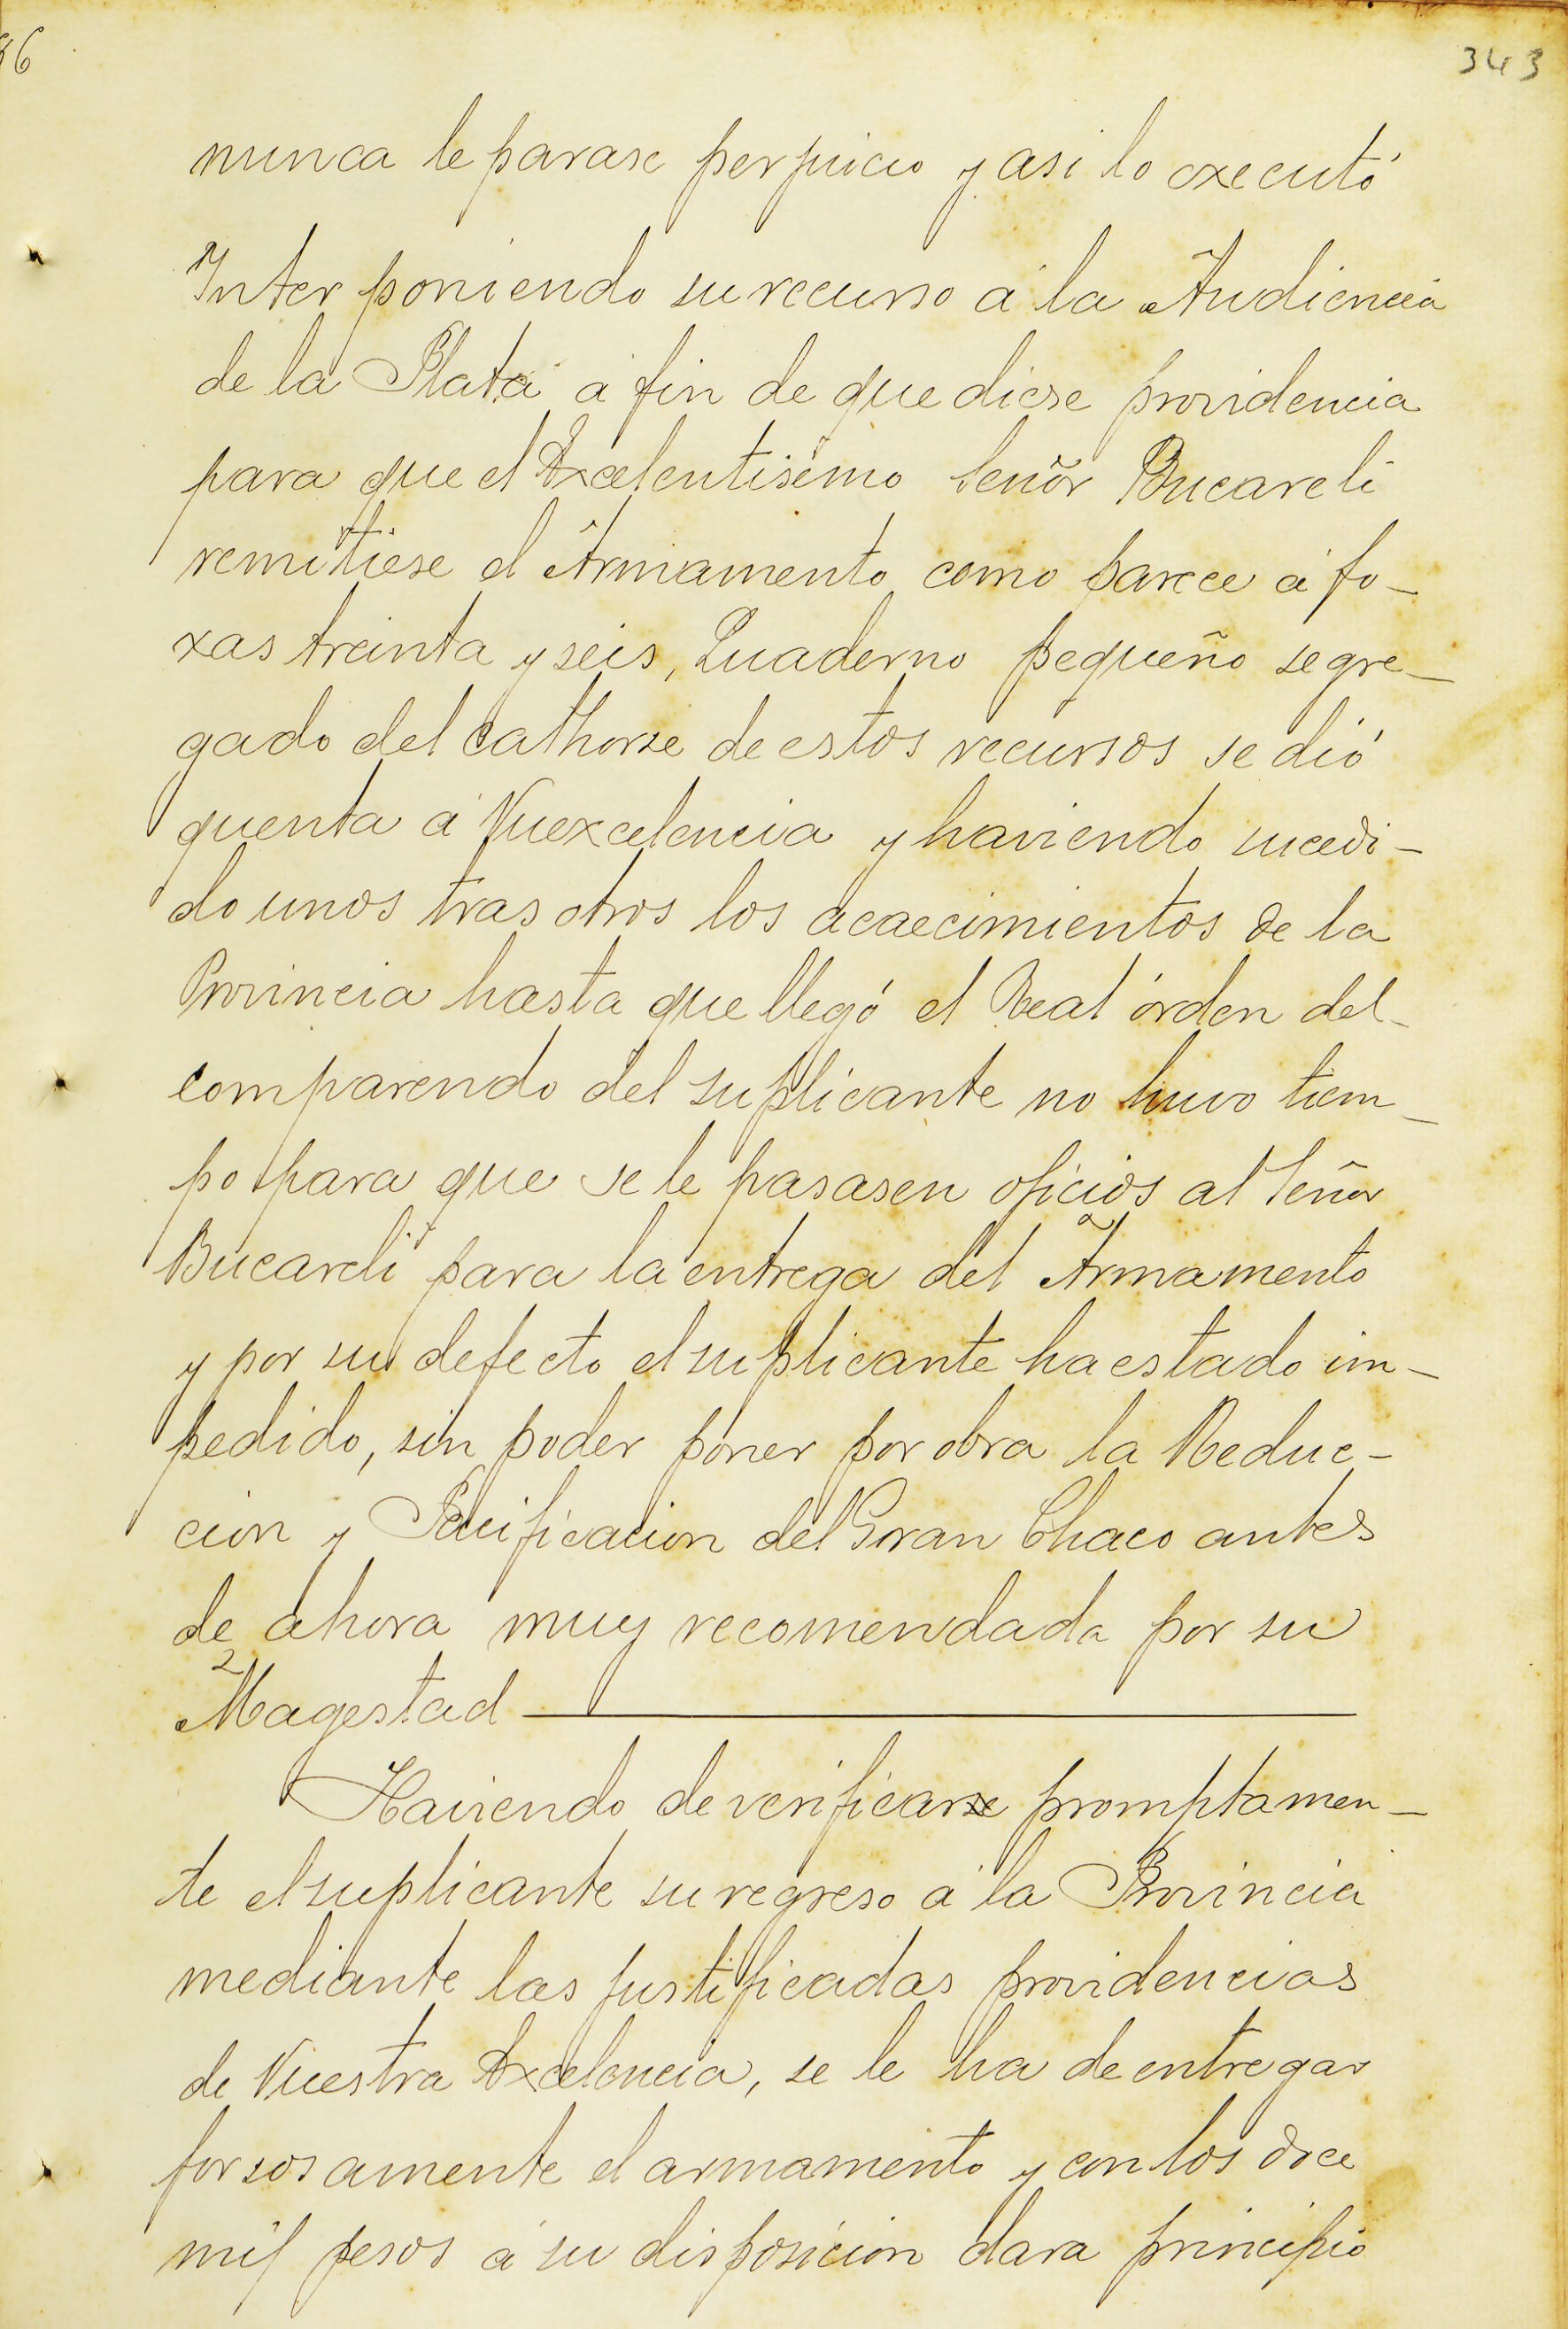 36
343
nunca le parase perjuicio y asi lo executó
Interponiendo su recurso á la Audiencia
de la Plata á fin de que diese providencia
para que el Excelentisimo Señor Bucareli
remitiese el Armamento como parece á fo-
xas treinta y seis, Quaderno pequeño segre-
gado del cathorse de estos recursos se dió
quenta á Vuexcelencia y haviendo sucedi-
do unos tras otros los acaecimientos de la
Provincia hasta que llegó el Real órden del-
comparendo del suplicante no huvo tiem-
po para que se le pasasen oficios al Señor
Bucareli para la entrega del Armamento
y por su defecto el suplicante ha estado im-
pedido, sin poder poner por obra la Reduc-
cion y Pacificacion del Gran Chaco antes
de ahora muy recomendada por su
Magestad
Haviendo de verificarse promptamen-
te el suplicante su regreso á la Provincia
mediante las justificadas providencias
de Vuestra Excelencia, se le ha de entregar
forsosamente el armamento y con los doce
mil pesos á su disposicion dara principio